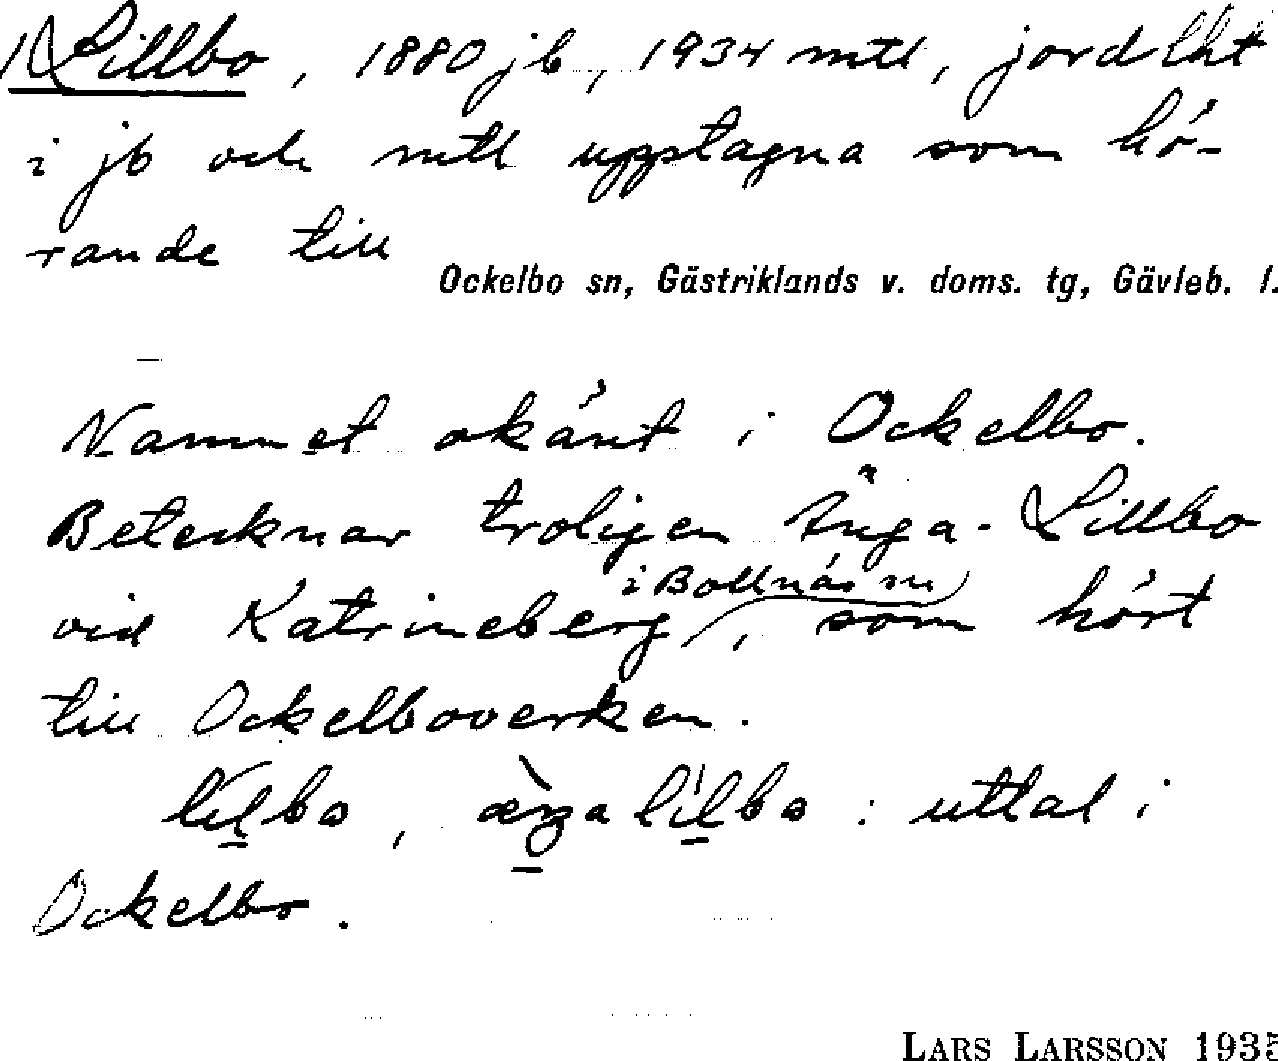 1) Lillbo, 1880 jb, 1934 mtl, jordlht
i jb och mtl upptagna som hö-
rande till
Ockelbo sn, Gästriklands v. doms. tg, Gävleb. l.
Namnet okänt i Ockelbo.
Betecknar troligen Änga-Lillbo
vid Katrineberg i Bollnäs sn, som hört
till Ockelboverken.
lilbo, æŋa lilbo : uttal i
Ockelbo.
LARS LARSSON 1935